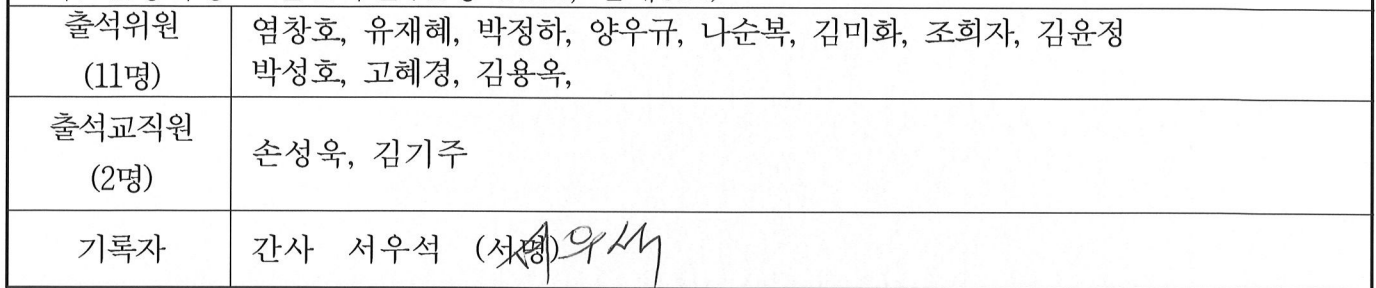 출석위원
(11명)
염창호, 유재혜, 박정하, 양우규, 나순복, 김미화, 조희자, 김윤정
박성호, 고혜경, 김용옥,
출석교직원
(2명)
손성욱, 김기주
기록자
간사 서우석 (서명)